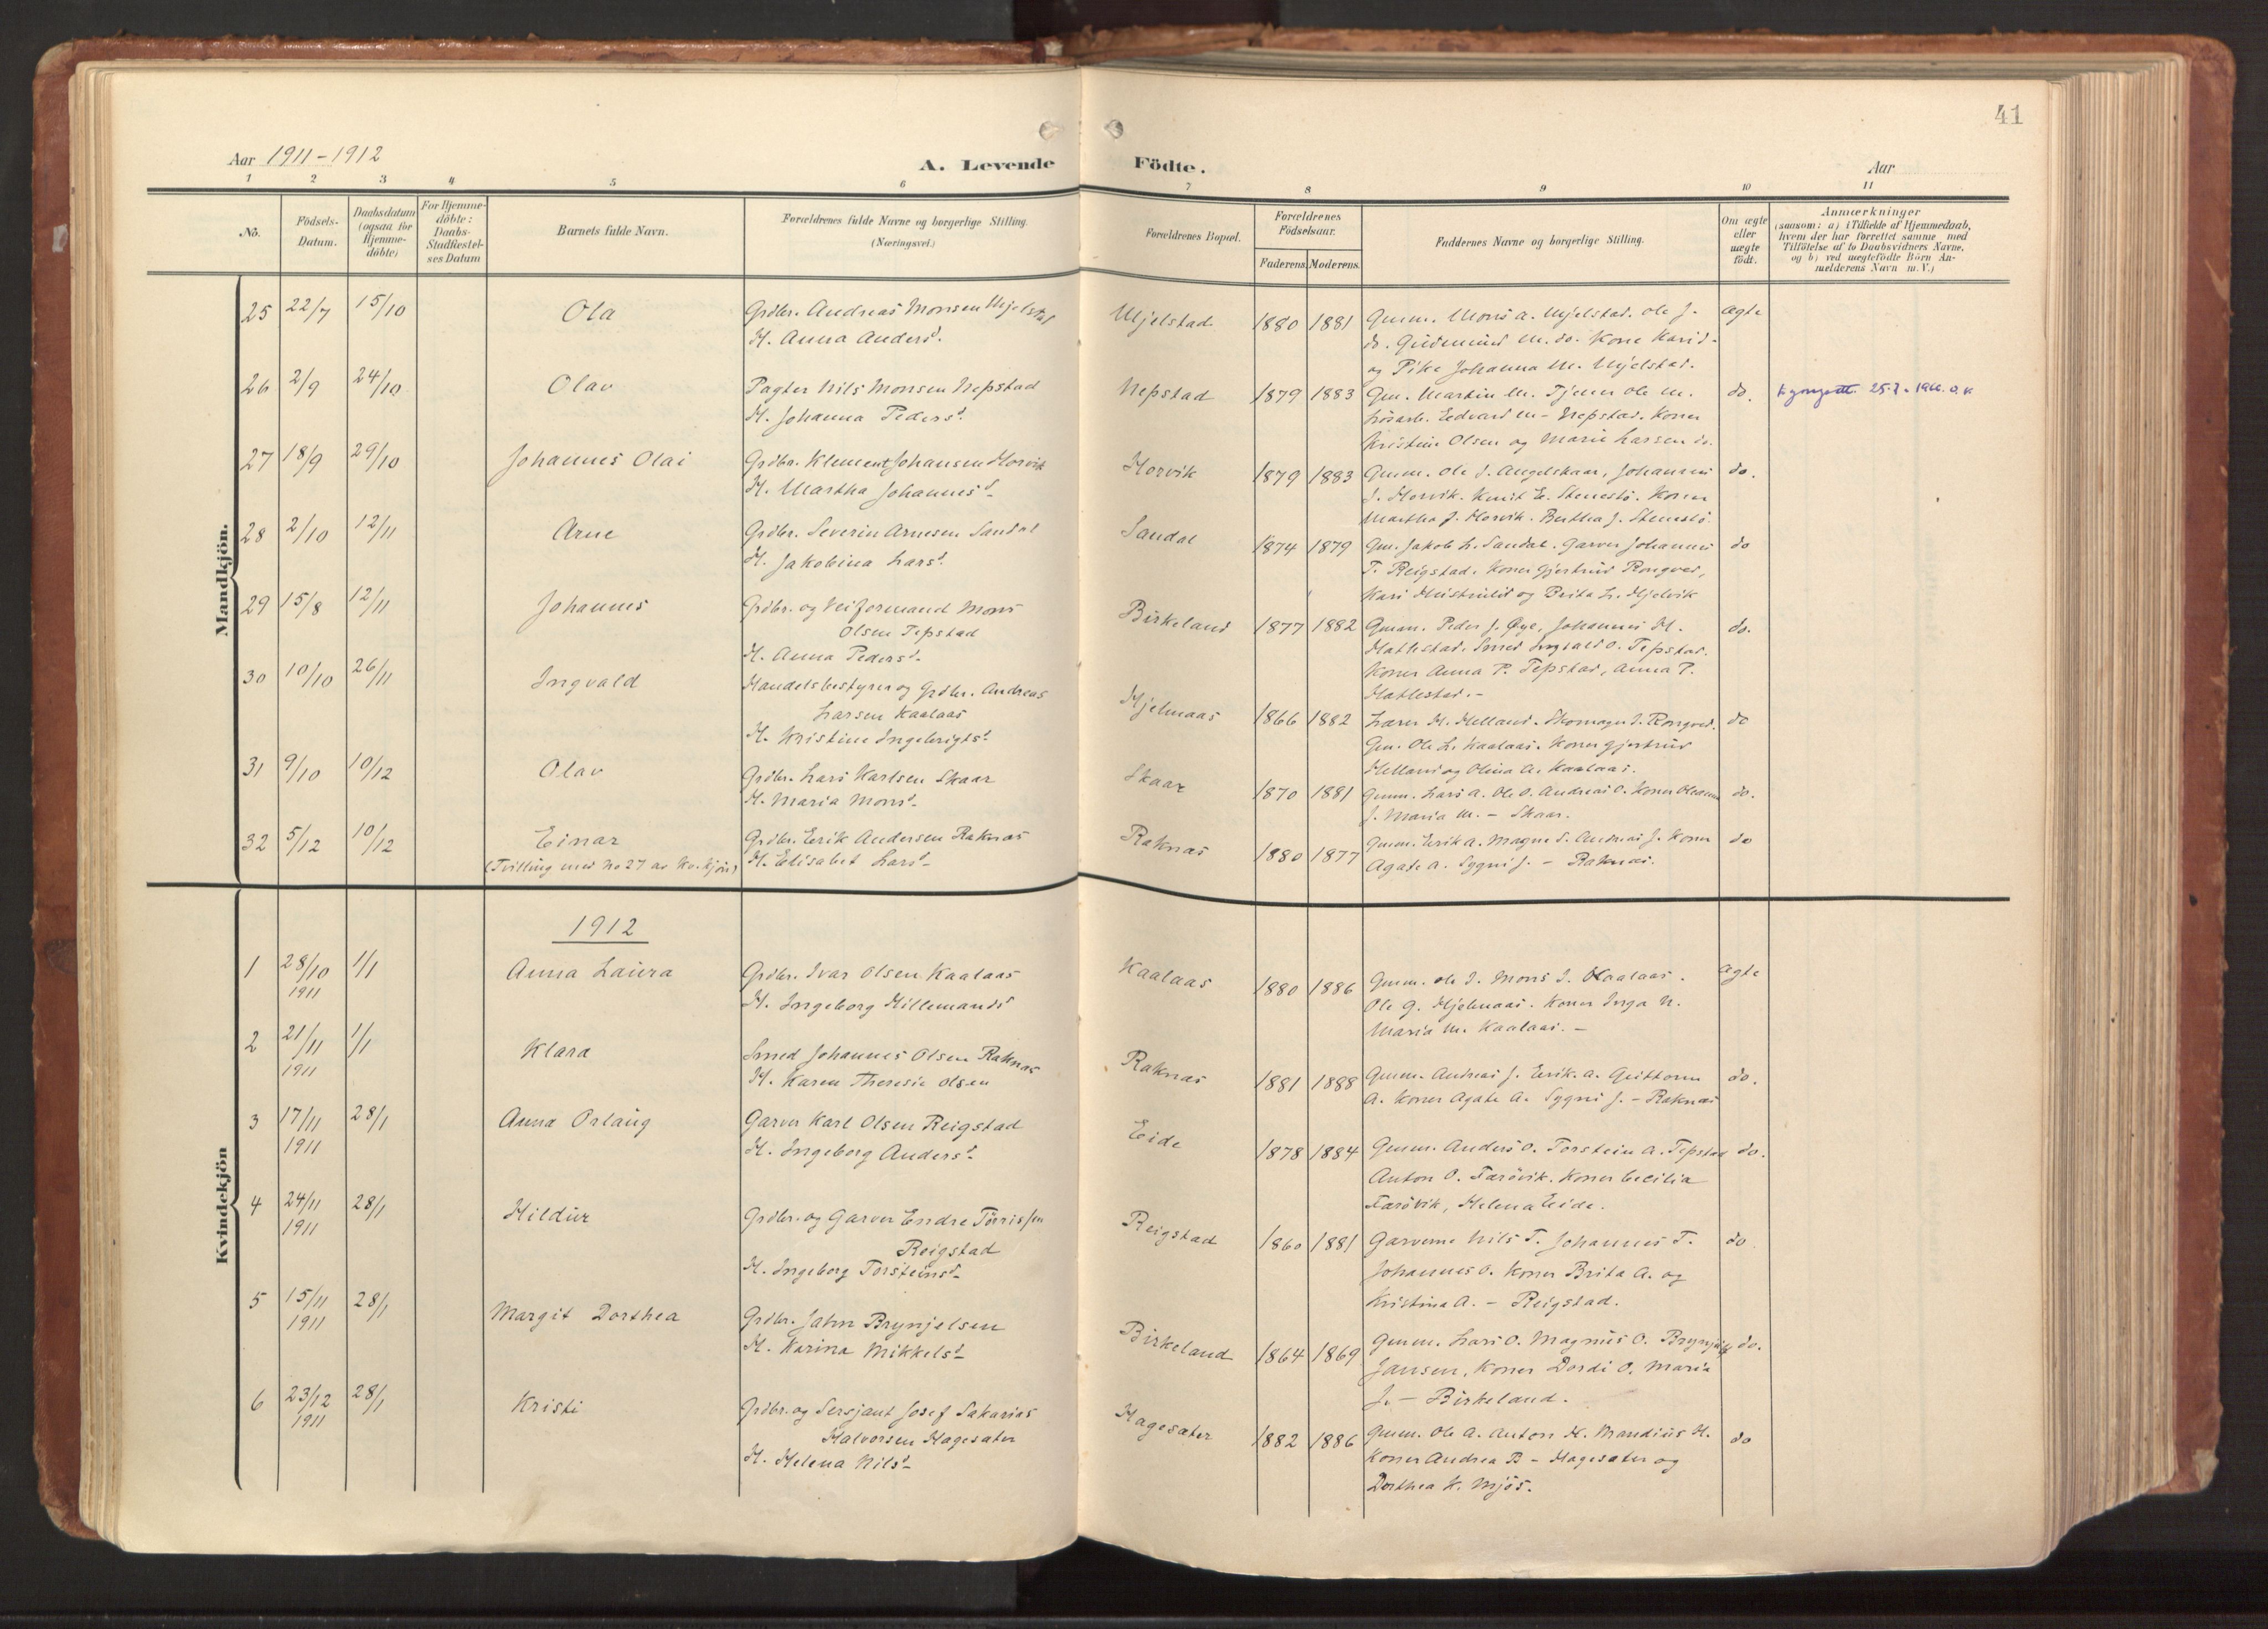 41
Aar 1911-1912
A. Levende Födte.
Aar
1 2 3 4 5 6 7 8 9 10 11
No.
Födsels-Datum.
Daabsdatum (ogsaa for Hjemmedöbte)
For Hjemmedöbte: Daabs-Stadfæstelses Datum
Barnets fulde Navn.
Forældrenes fulde Navne og borgerlige Stilling. (Næringsvei.)
Forældrenes Bopæl.
Forældrenes Födselsaar.
Faderens. Moderens.
Faddernes Navne og borgerlige Stilling.
Om ægte eller uægte födt.
Anmærkninger
(saasom: a) i Tilfælde af Hjemmedaab, hvem der har forrettet samme med Tilföielse af to Daabsvidners Navne, og b) ved uægtefödte Börn Anmelderens Navn m. V.)
Mandkjön.
25 22/7 15/10 Ola Grdbr. Andreas Monsen Mjelstad Mjelstad 1880 1881 Gmm. Mons A. Mjelstad. Ole J. ægte
H. Anna Andersd. do. Gudmund M. do. Kone Kari d-
og Pike Johanna M. Mjelstad.
26 2/9 24/10 Olav Pagter Nils Monsen Nepstad Nepstad 1879 1883 Gm. Martin M. Tjener Ole M. do. 25.7.1966. O.K
H. Johanna Pedersd. Lösarb. Edvard M - Nepstad. Koner
Kristine Olsen og Marie Larsen do.
27 18/9 29/10 Johannes Olai Grdbr. Klement Johansen Horvik Horvik 1879 1883 Gmm. Ole J. Angelskaar, Johannes do.
H. Martha Johannesd- J. Horvik. Knut E. Stenestö. Koner
Martha J. Horvik. Bertha J. Stenestö.
28 2/10 12/11 Arne Grdbr. Severin Arnesen Sandal Sandal 1874 1879 Gm. Jakob L. Sandal. Garver Johannes do
H. Jakobina Larsd. T. Reigstad. Koner Gjertrud Rongved,
Kari og Brita L. Hjelvik
29 15/8 12/11 Johannes Grdbr. og Veiformand Mons Birkeland 1877 1882 Gmm. Peder J. Øye, Johannes H. do.
Olsen Tepstad Hatlestad. Smed Ingvald O. Tepstad.
H. Anna Pedersd- Koner Anna P. Tepstad, Anna P.
Hatlestad.-
30 10/10 26/11 Ingvald Handelsbestyrer og Grdbr. Andreas Hjelmaas 1866 1882 Lærer H. Helland. Skomager J. Rongved. do
Larsen Kaalaas Gm. Ole L. Kaalaas. Koner Gjertrud
H. Kristine Ingebrigtsd. Helland og Olina A. Kaalaas.
31 9/10 10/12 Olav Grdbr. Lars Karlsen Skaar Skaar 1870 1881 Gmm. Lars A. Ole O. Andreas O. Koner do.
H. Maria Monsd- J. Maria M. - Skaar.
32 5/12 10/12 Einar Grdbr. Erik Andersen Raknæs Raknæs 1880 1877 Gmm. Erik A. Magne S. Andreas J. Koner do
(Tvilling med No 27 av Kv.kjön) H. Elisabet Larsd- Agate A. Sygni J. - Raknæs.
Kvindekjön
1912
1 28/10 1911 1/1 Anna Laura Grdbr. Ivar Olsen Kaalaas Kaalaas 1880 1886 Gmm. Ole I. Mons I. Kaalaas. ægte
H. Ingeborg Hillemandsd Ole G. Hjelmaas. Koner Inga N.
Maria M. Kaalaas.-
2 21/11 1911 1/1 Klara Smed Johannes Olsen Raknæs Raknæs 1881 1888 Gmm. Andreas J. Erik A. Guttorm do.
H. Karen Theresie Olsen A. Koner Agate A. Sygni J. - Raknæs
3 17/11 1911 28/1 Anna Oslaug Garver Karl Olsen Reigstad Eide 1878 1884 Gmm. Anders O. Torstein A. Tepstad do.
H. Ingeborg Andersd. Anton O. Farövik. Koner Cecilia
Farövik, Helena Eide.
4 24/11 1911 28/1 Hildur Grdbr. og Garver Endre Torrissen Reigstad 1860 1881 Garverne Nils T. Johannes T. do
Reigstad Johannes O. Koner Brita A. og
H. Ingeborg Torsteinsd- Kristina A. - Reigstad.
5 15/11 1911 28/1 Margit Dorthea Grdbr. Jahn Brynjelsen Birkeland 1864 1869 Gmm. Lars O. Magnus O. Brynjulf do.
H. Karina Mikkelsd- Jansen, Koner Dordi O. Maria
J. - Birkeland.
6 23/12 1911 28/1 Kristi Grdbr. og Sersjant Josef Sakarias Hagesæter 1882 1886 Gmm. Ole A. Anton H. Mandius H. do
Halvorsen Hagesæter Koner Andrea B - Hagesæter og
H. Helena Nilsd- Dorthea K. Mjös.